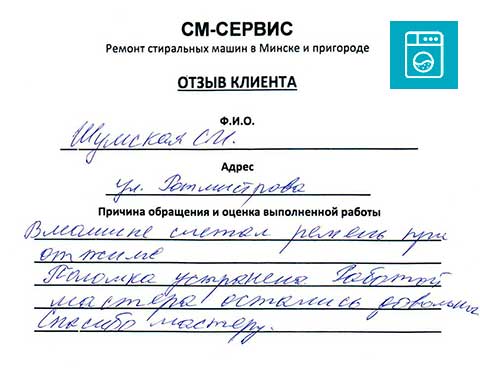 СМ-СЕРВИС
Ремонт стиральных машин в Минске и пригороде
ОТЗЫВ КЛИЕНТА
Ф.И.О.
Шумская С.И.
Адрес
ул. Ротмистрова
Причина обращения и оценка выполненной работы
В машине слетал ремень при
отжиме
Поломка устранена Работой
мастера остались довольны
Спасибо мастеру.